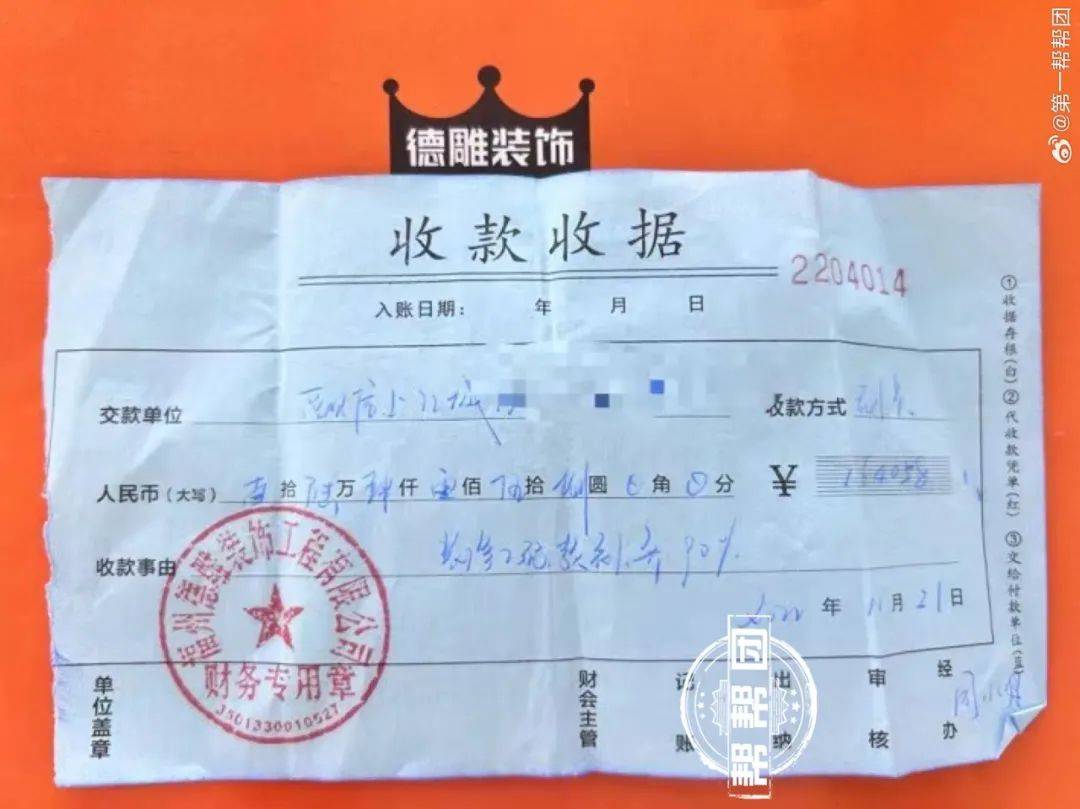 @第一帮帮团
德雕装饰
收款收据
2204014
入账日期： 年 月 日
交款单位 上江城 收款方式 刷卡
人民币（大写） 壹拾陆万肆仟 佰伍拾捌圆0角0分 ¥ 164058
收款事由 剩余 90%
2022年11月21日
福州德雕装饰工程有限公司
财务专用章
3501330010527
单位盖章 财会主管 记账 出纳 审核 经办 周小
①收据存根(白)②代收款凭单(红)③交给付款单位(蓝
帮帮团